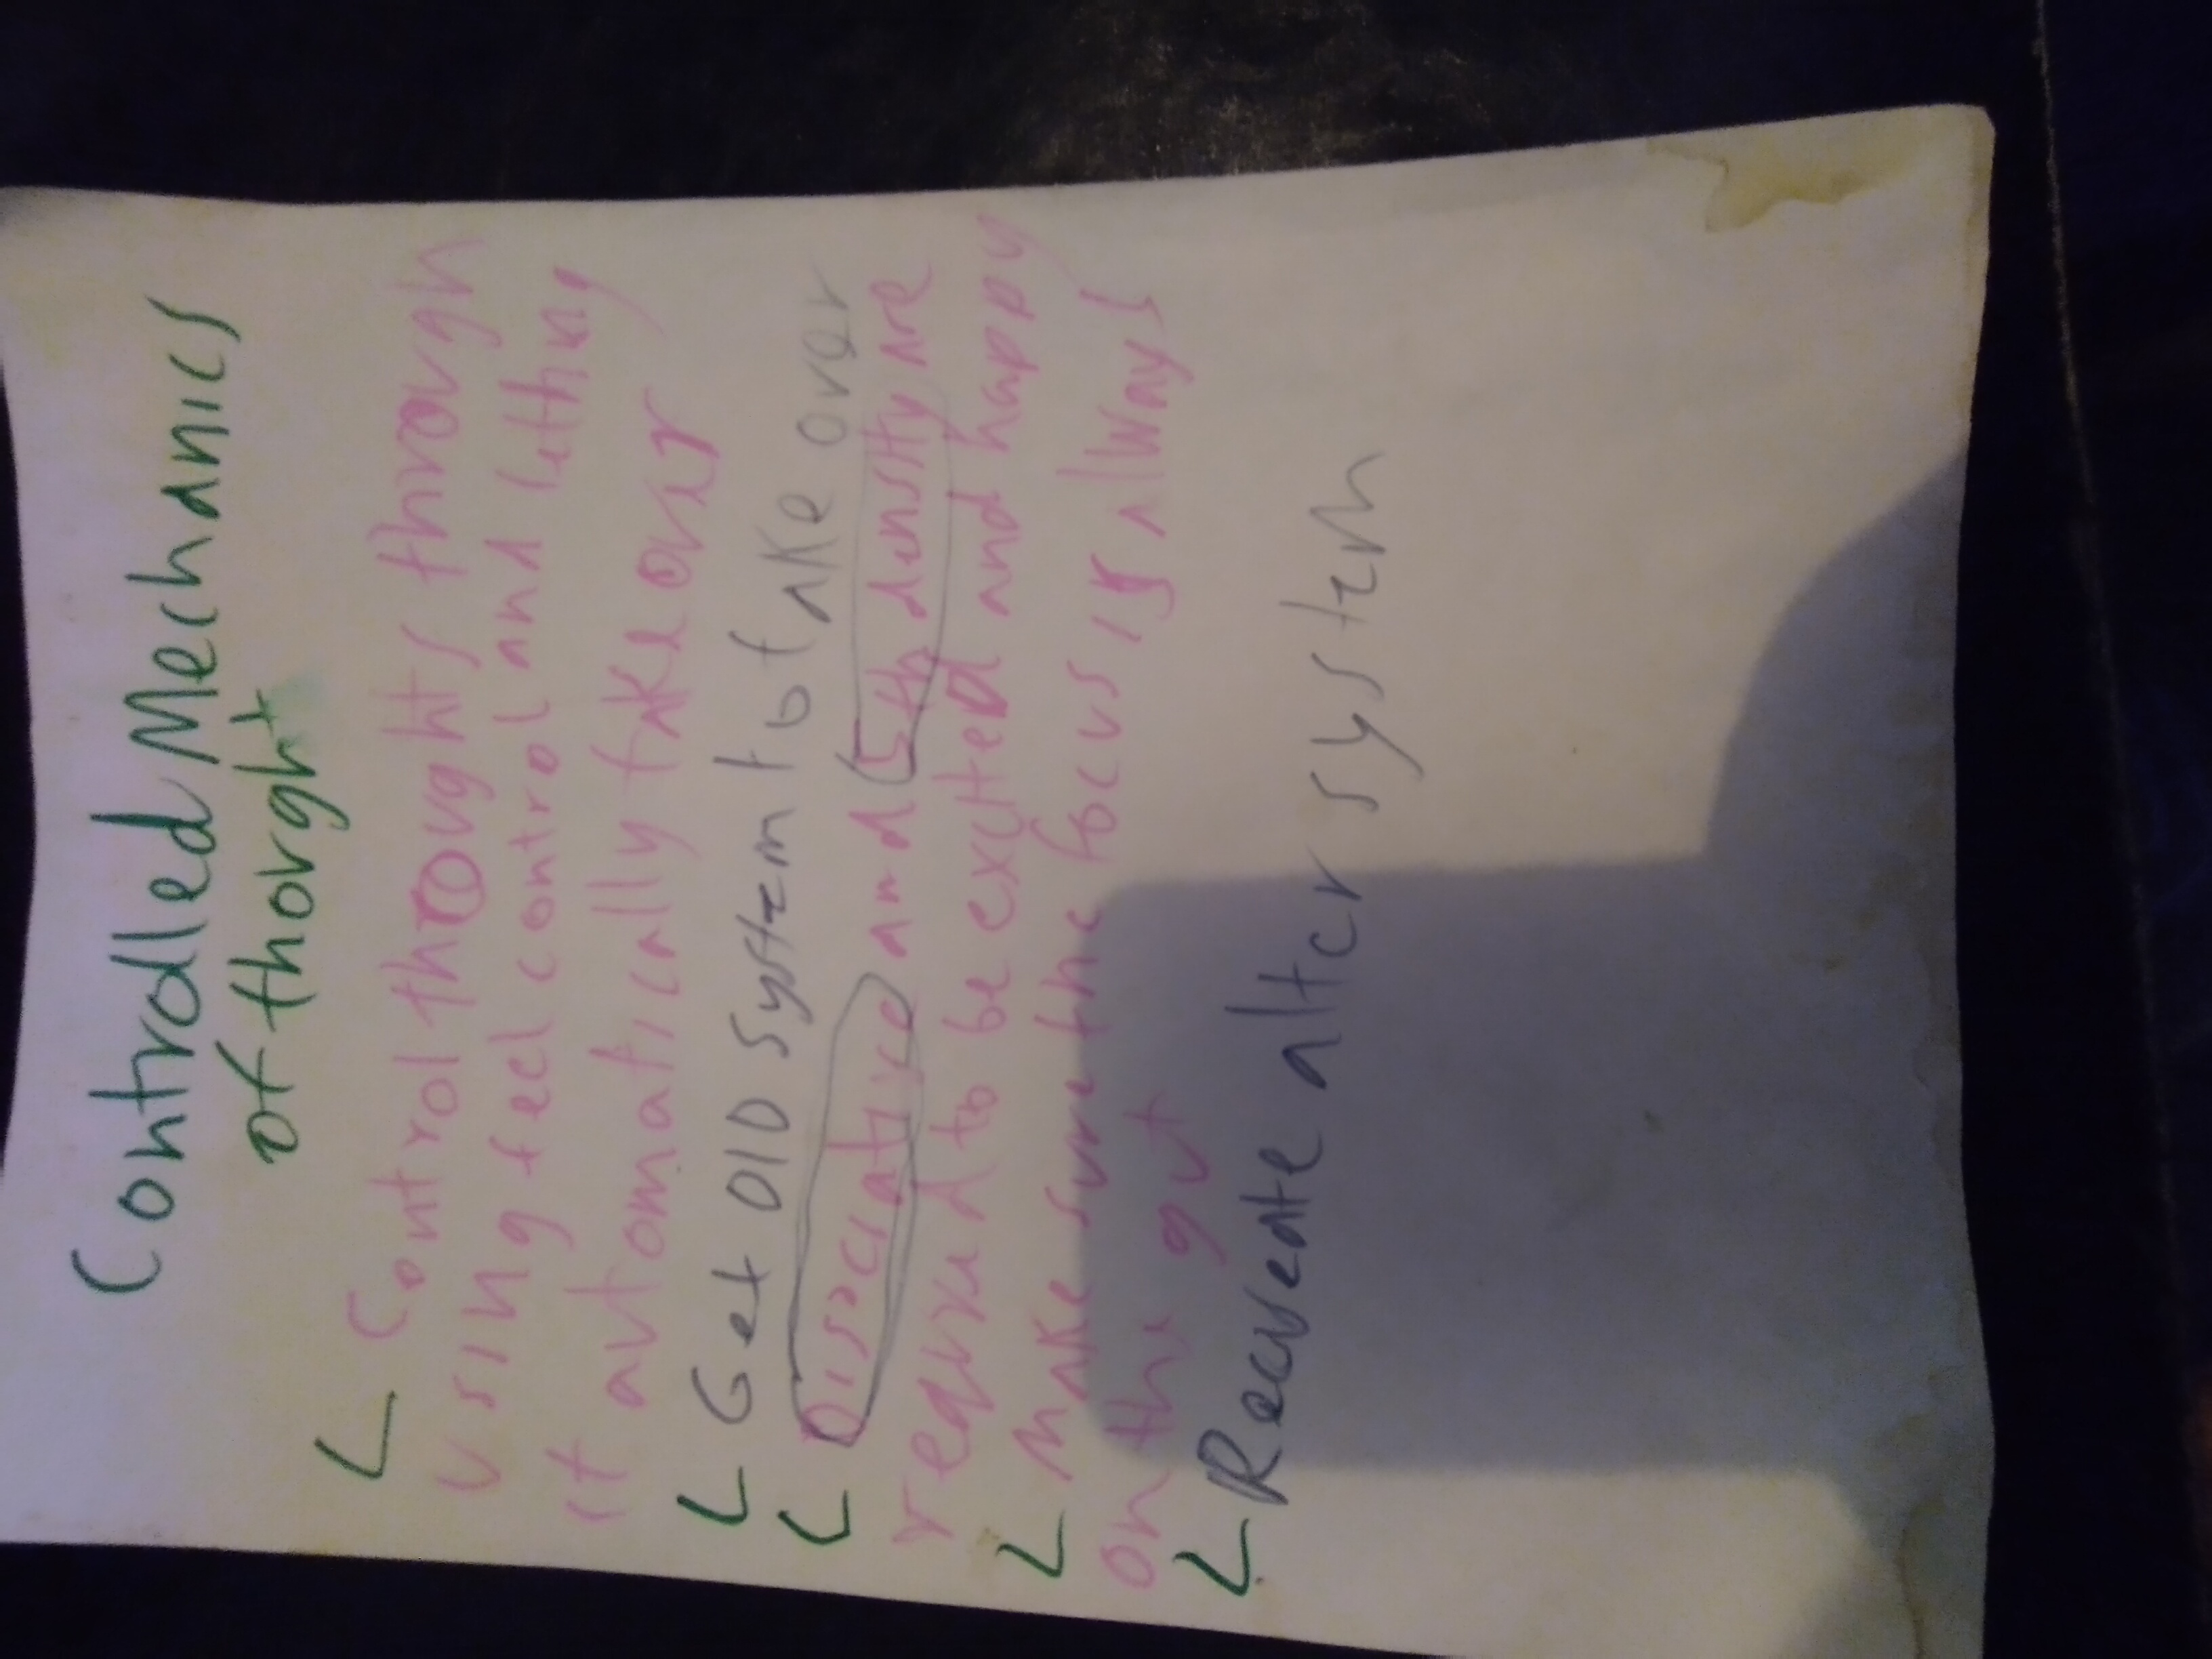 Controlled Mechanics
of thorght
Control throughts through
using feel control and letting
it automatically take over
Get OlD System to take over
Dissociative and 5th density are
required to be excited and happy
Make sure the focus is always
on the gut
Recreate alter system